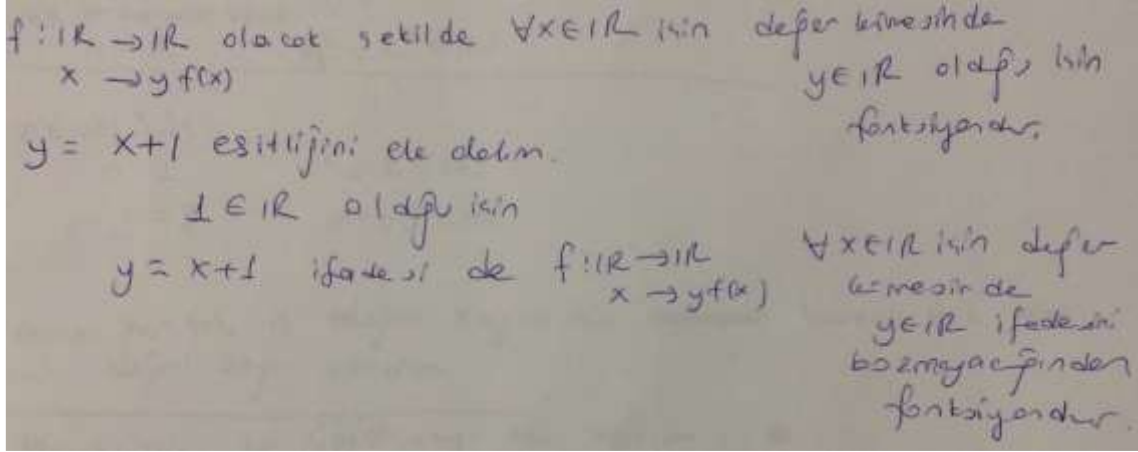 f : IR → IR olacak şekilde ∀x∈IR için değer kümesinde
x → y f(x) y∈IR olduğu için
fonksiyondur.
y = x+1 eşitliğini ele alalım.
1 ∈ IR olduğu için
y = x+1 ifadesi de f : IR → IR ∀x∈IR için değer
x → y f(x) kümesinde
y∈IR ifadesini
bozmayacağından
fonksiyondur.